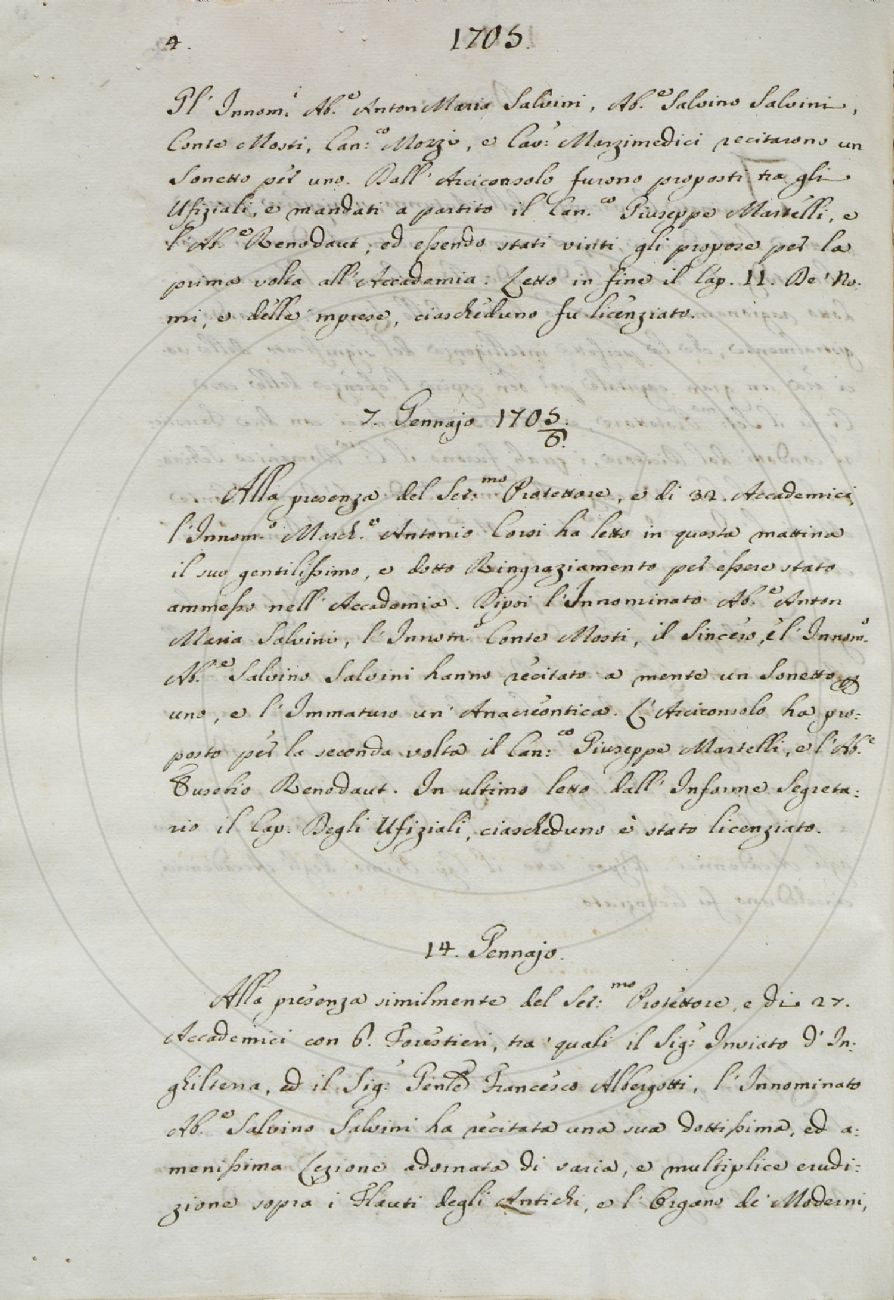 4.
1705.
Gl' Innom.i Ab.e Anton Maria Salvini, Ab.e Salvino Salvini,
Conte Mosti, Can:co Mozzi, e Cav: Marzimedici recitarono un
Sonetto per uno. Dall' Arciconsolo furono proposti tra gli
Ufiziali, e mandati a partito il Can.co Giuseppe Martelli, e
l' Ab.e Renodaut, ed essendo stati vinti gli propose per la
prima volta all' Accademia: Letto in fine il Cap. II. De' No:
mi, e delle 'mprese, ciascheduno fu licenziato.
7. Gennajo 1705/6.
Alla presenza del Ser:mo Protettore, e di 32. Accademici,
l' Innom.o March.e Antonio Corsi ha letto in questa mattina
il suo gentilissimo, e dotto Ringraziamento per essere stato
ammesso nell' Accademia. Dipoi l' Innominato Ab.e Anton
Maria Salvini, l' Innom.o Conte Mosti, il Sincero, e l' Innom.o
Ab.e Salvino Salvini hanno recitato a mente un Sonetto per
uno, e l' Immaturo un' Anacreontica. L' Arciconsolo ha pro:
posto per la seconda volta il Can:co Giuseppe Martelli, e l' Ab.e
Eusebio Renodaut. In ultimo letto dall' Informe Segreta:
rio il Cap. Degli Ufiziali, ciascheduno è stato licenziato.
14. Gennajo.
Alla presenza similmente del Ser:mo Protettore, e di 27.
Accademici con 6. Forestieri, tra' quali il Sig: Inviato d' In:
ghilterra, ed il Sig: Gen.le Francesco Albergotti, l' Innominato
Ab.e Salvino Salvini ha recitata una sua dottissima, ed a:
menissima Lezione adornata di varia, e multiplice erudi:
zione sopra i Flauti degli Antichi, e l' Organo de' Moderni,